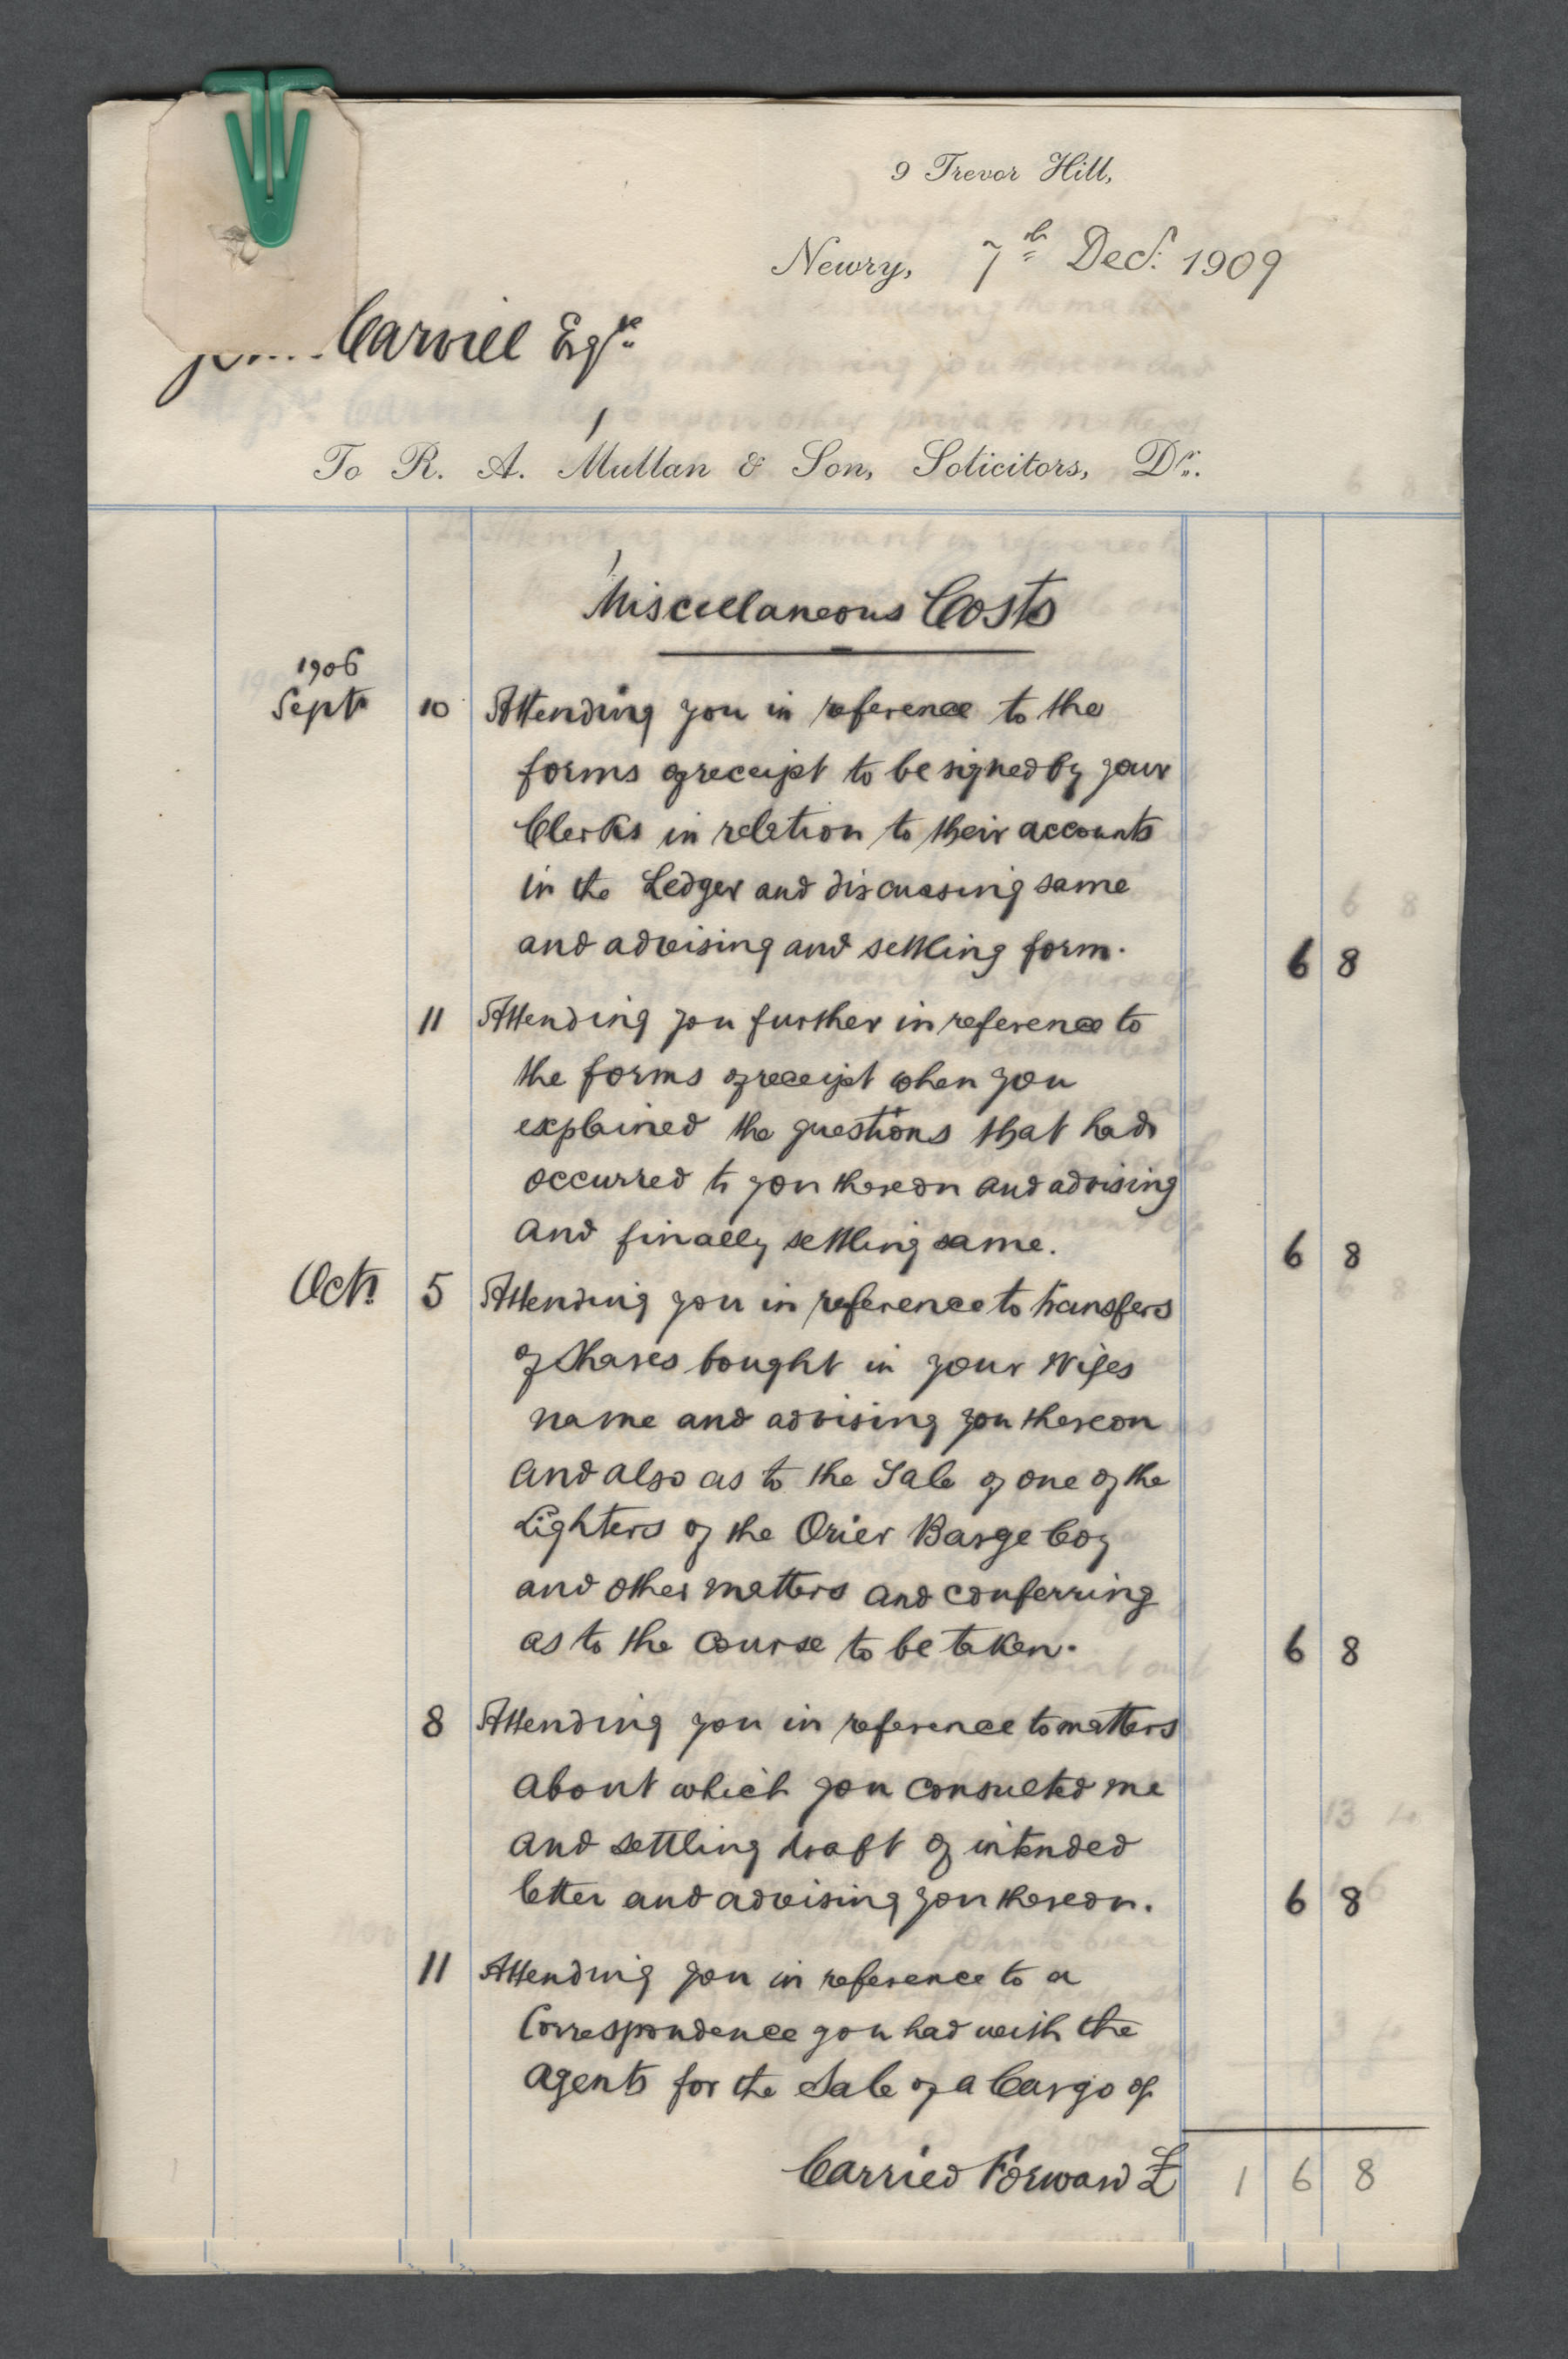 9 Trevor Hill,
Newry, 7th Decr. 1909
Carvill Esqre
To R. A. Mullan & Son, Solicitors, Dr.
Miscellaneous Costs
1906
Septr 10 Attending you in reference to the
forms of receipt to be signed by your
Clerks in relation to their accounts
in the Ledger and discussing same
and advising and settling form. 6 8
11 Attending you further in reference to
the forms of receipt when you
explained the questions that had
occurred to you thereon and advising
and finally settling same. 6 8
Octr. 5 Attending you in reference to transfers
of Shares bought in your Wifes
name and advising you thereon
and also as to the Sale of one of the
Lighters of the Orier Barge Coy
and other matters and conferring
as to the course to be taken. 6 8
8 Attending you in reference to matters
about which you consulted me
and settling draft of intended
letter and advising you thereon. 6 8
11 Attending you in reference to a
Correspondence you had with the
agents for the Sale of a Cargo of
Carried Forward £ 1 6 8